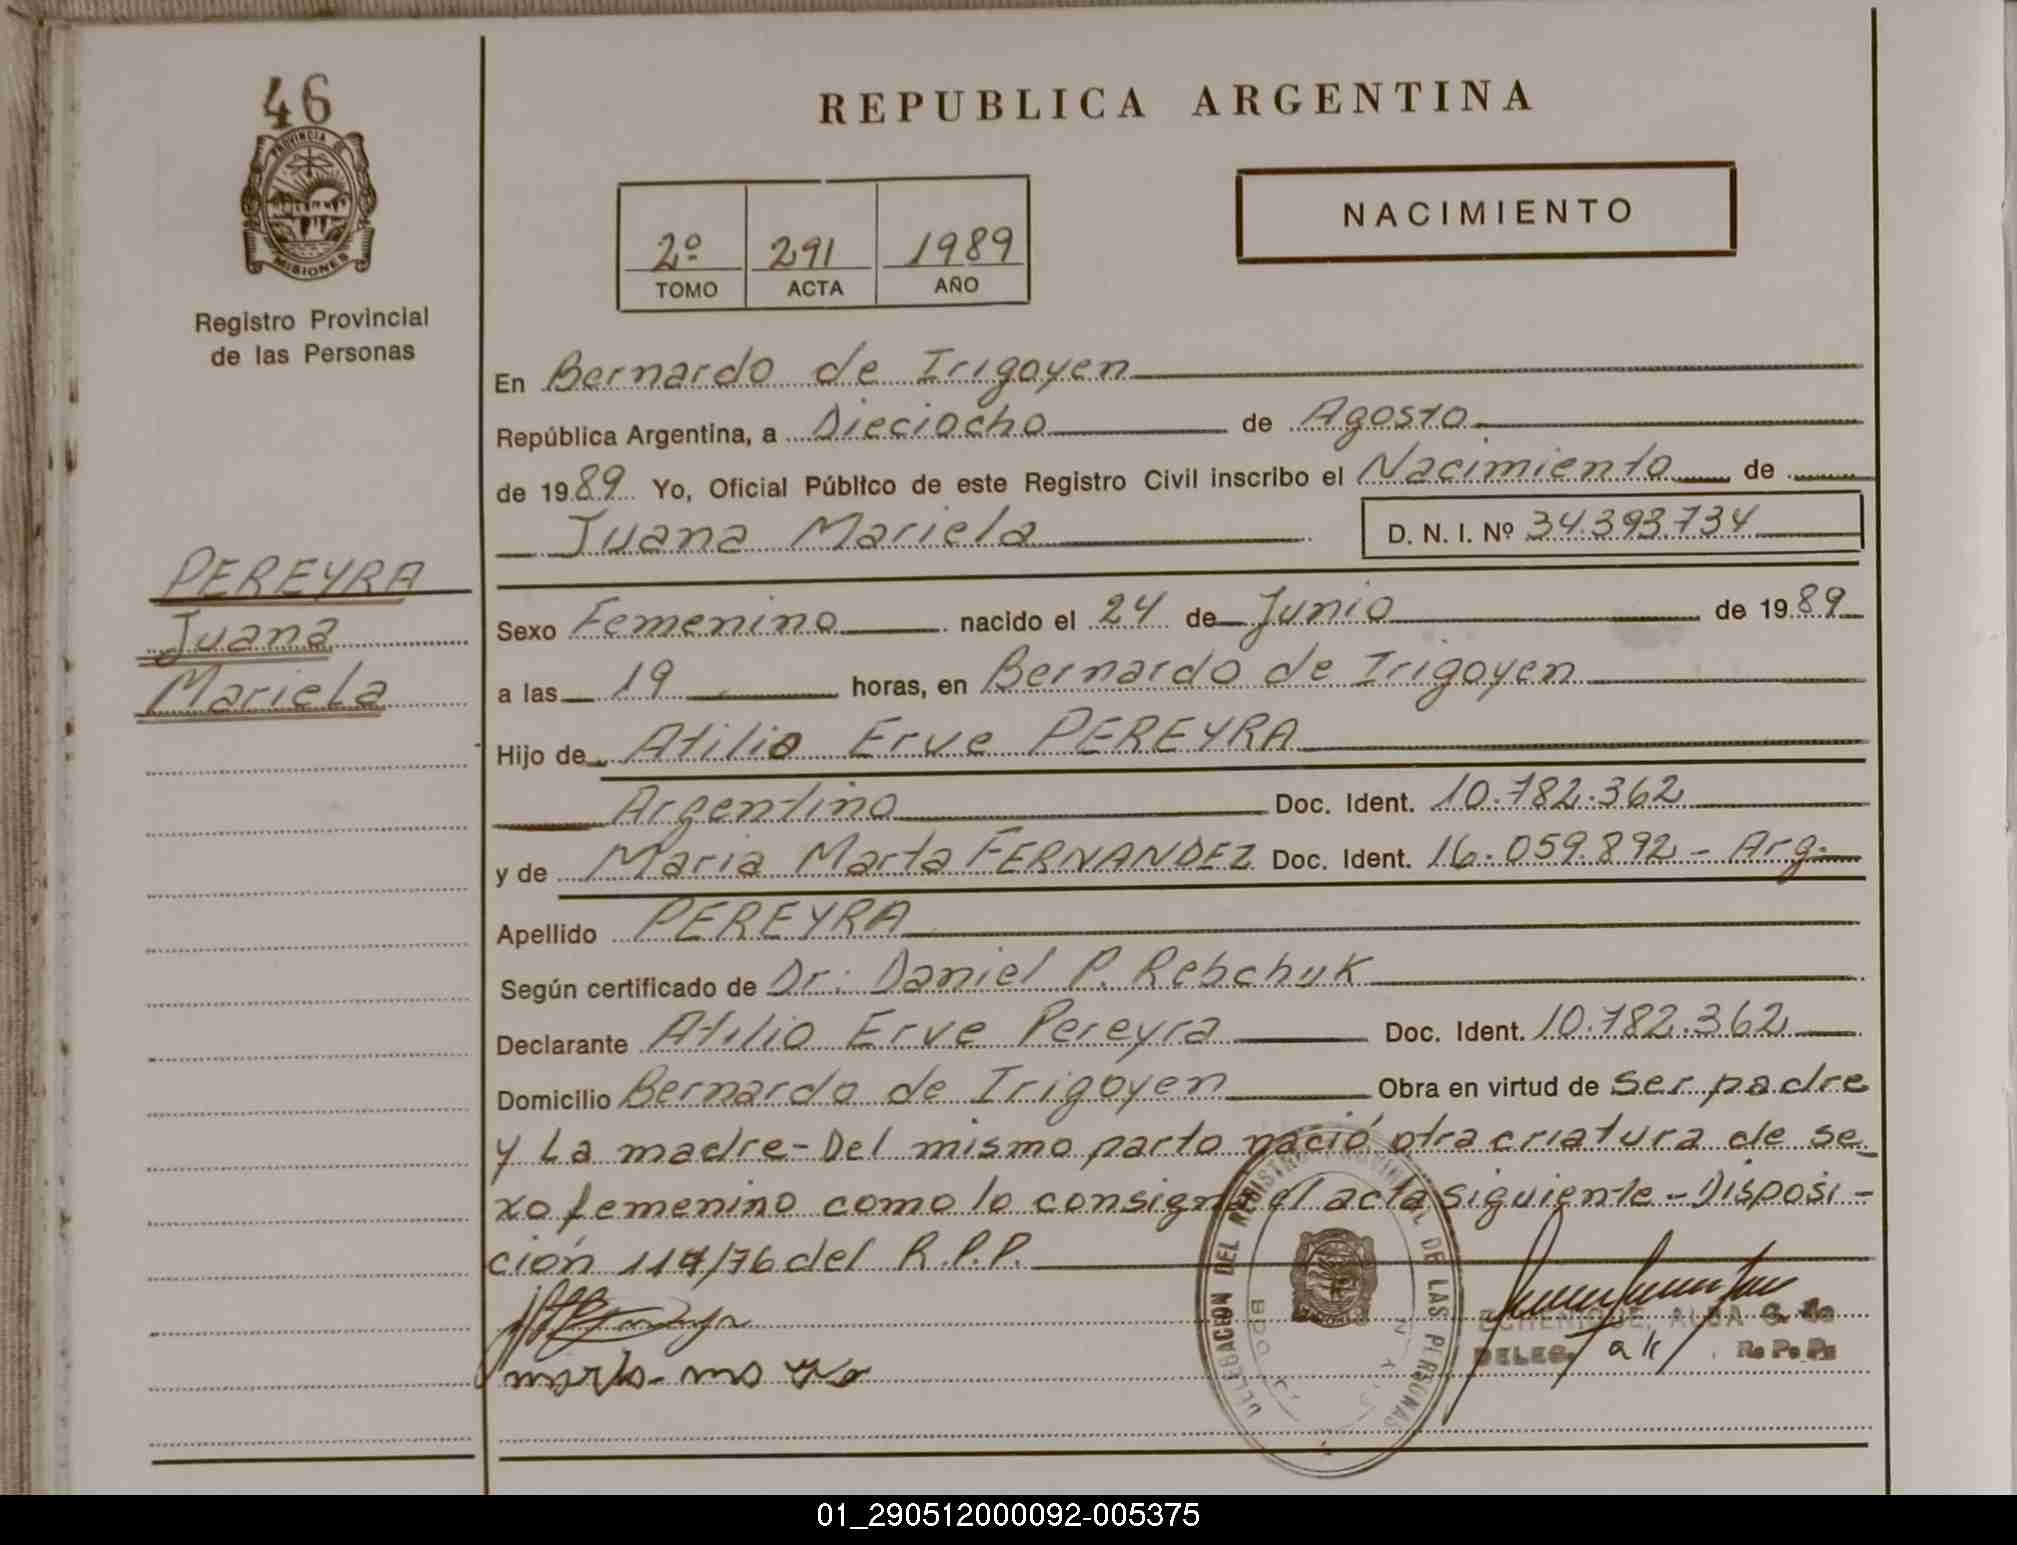 46
PROVINCIA DE
MISIONES
Registro Provincial
de las Personas
PEREYRA
Juana
Mariela
REPUBLICA ARGENTINA
NACIMIENTO
2º 291 1989
TOMO ACTA AÑO
En Bernardo de Irigoyen
República Argentina, a Dieciocho de Agosto
de 1989 Yo, Oficial Público de este Registro Civil inscribo el Nacimiento de
Juana Mariela D. N. I. Nº 34.393.734
Sexo Femenino nacido el 24 de Junio de 1989
a las 19 horas, en Bernardo de Irigoyen
Hijo de Atilio Erve PEREYRA
Argentino Doc. Ident. 10.782.362
y de Maria Marta FERNANDEZ Doc. Ident. 16.059.892 - Arg.
Apellido PEREYRA
Según certificado de Dr. Daniel P. Rebchuk
Declarante Atilio Erve Pereyra Doc. Ident. 10.782.362
Domicilio Bernardo de Irigoyen Obra en virtud de ser padre
y la madre - Del mismo parto nació otra criatura de se-
xo femenino como lo consigna el acta siguiente - Disposi-
ción 114/76 del R.P.P.
DELEGACION DEL REGISTRO PROVINCIAL DE LAS PERSONAS
ECHENIQUE, ALBA G. de
DELEG. R. P. P.
01_290512000092-005375